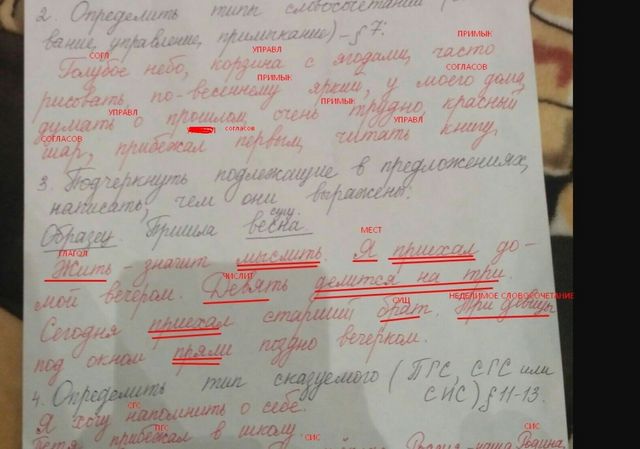 2. Определить типы словосочетаний
вание, управление, примыкание) – § 7.
СОГЛ УПРАВЛ ПРИМЫК
Голубое небо, корзина с ягодами, часто
ПРИМЫК СОГЛАСОВ
рисовать, по-весеннему яркий, у моего дома,
УПРАВЛ ПРИМЫК УПРАВЛ
думать о прошлом, очень трудно, красный
СОГЛАСОВ согласов
шар, прибежал первым, читать книгу.
3. Подчеркнуть подлежащие в предложениях,
написать, чем они выражены.
сущ.
Образец. Пришла весна.
ГЛАГОЛ МЕСТ
Жить – значит мыслить. Я приехал до-
ЧИСЛИТ
мой вечером. Девять делится на три.
СУЩ НЕДЕЛИМОЕ СЛОВОСОЧЕТАНИЕ
Сегодня приехал старший брат. Три девицы
под окном пряли поздно вечерком.
4. Определить тип сказуемого (ПГС, СГС или
СИС) § 11-13.
СГС
Я хочу напомнить о себе.
ПГС СИС СИС
Петя прибежал в школу. Россия – наша Родина.